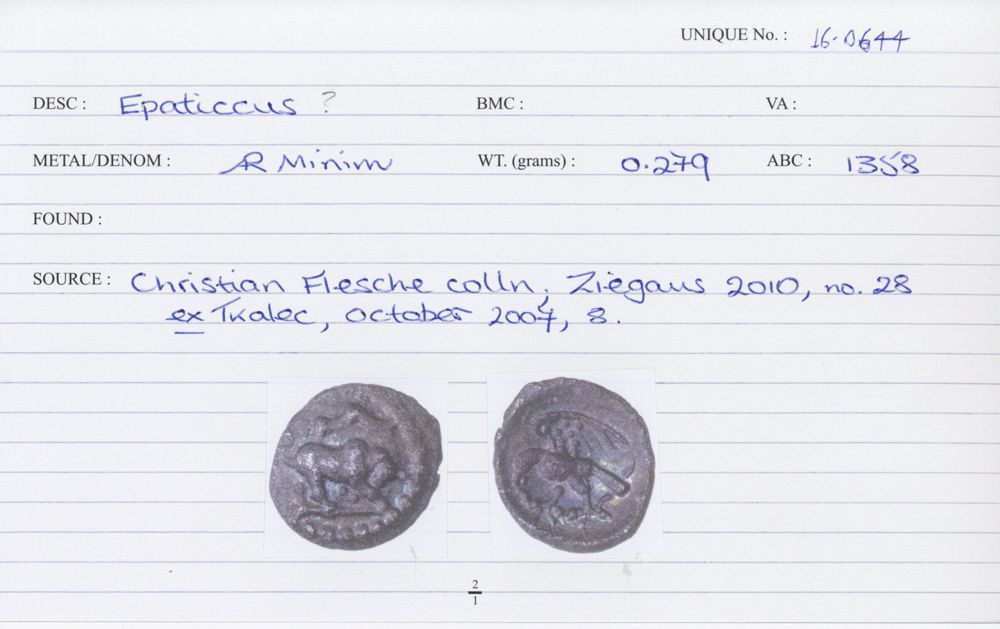 UNIQUE No. : 16-0644
DESC : Epaticcus ? BMC : VA :
METAL/DENOM : AR Minim WT. (grams) : 0.279 ABC : 1358
FOUND :
SOURCE : Christian Flesche colln, Ziegaus 2010, no. 28
ex Tkalec, October 2007, 8.
2
1